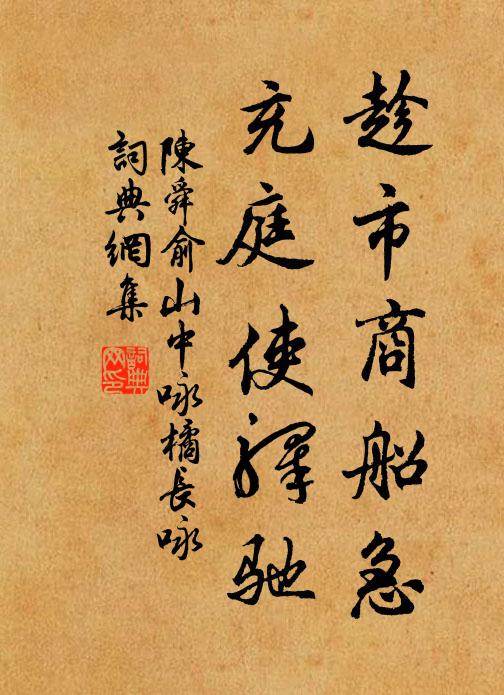 趁市商船急
充庭使驛馳
陳舜俞山中咏橘長咏
詞典網集
詞典网印